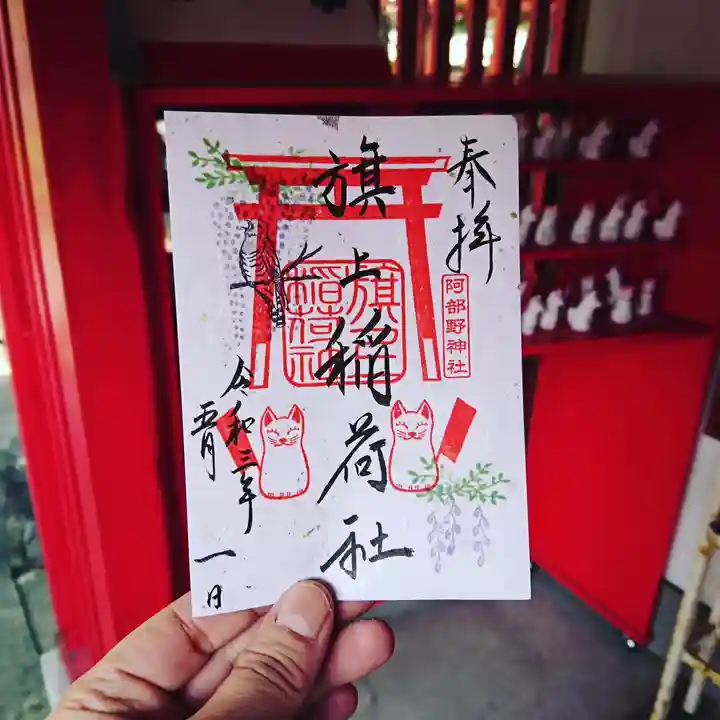 奉拝
阿部野神社
旗上稲荷社
旗上稲荷社
令和三年
五月
一日